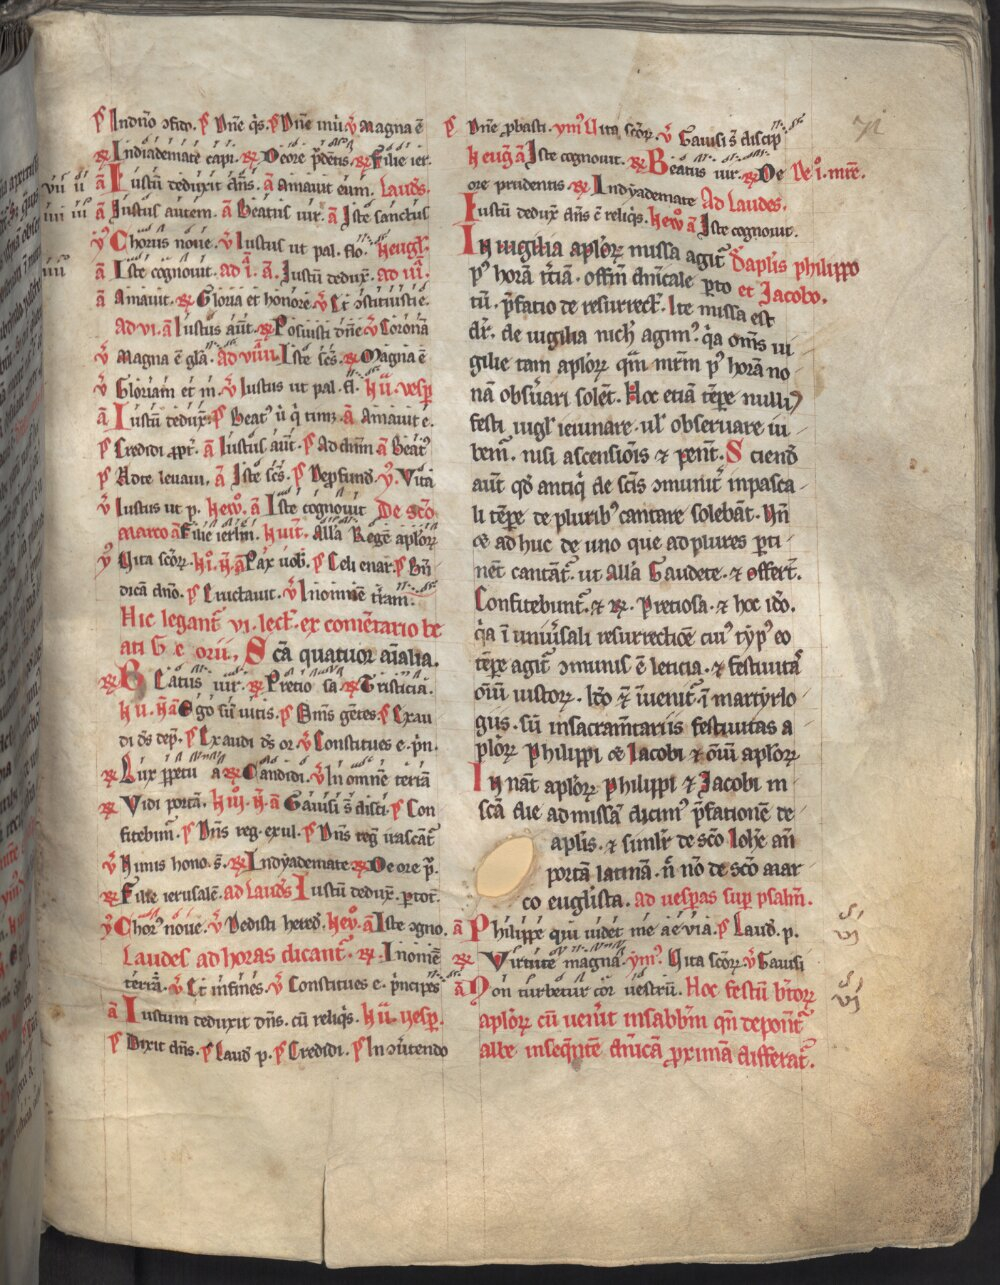 p̄ Indn̄o ɔfido. p̄ Dn̄e q̄s. p̄ Dn̄e mīı v̄ Magna ē
℟ Indiademate capi. ℟ De ore p̄dētis. ℟ Filie ier.
ā Iustū deduxit dn̄s. ā Amauit eum. Laud̄s.
ā Iustus autem. ā Beatus uir. ā Iste sanctus
ẏ Chorus noue. v̄ Iustus ut pal. flo. h̄ eugl̄.
ā Iste cognouit. ad i. ā. Iustū dedux̄. ad iii.
ā Amauit. ℟ Gloria et honore. v̄ Et ɔstituisti e.
ad vi. ā Iustus aūt. ℟ Posuisti dn̄e v̄ Coronā
v̄ Magna ē gl̄a. ad viiii. Iste sc̄s. ℟ Magna ē
v̄ Gloriam et m. v̄ Iustus ut pal. fl. h̄ ii. vesp̄
ā Iustū dedux̄. p̄ Beat⁹ ū q̄ tim̄. ā Amauit e.
p̄ Credidi ꝓpt̄. ā Iustus aūt. p̄ Ad dn̄m ā Beat⁹
p̄ Ad te leuaui. ā Iste sc̄s. p̄ De ꝓfund̄. ẏ. Vita
v̄ Iustus ut p. h̄ ewº. ā Iste cognouit De sc̄o
marco ā Filie ierl̄m. h̄ uit̄. All̄a Regē apl̄oꝝ
ẏ Uita sc̄oꝝ. h̄ i. n̄. ā Pax uob̄. p̄ Celi enar̄. p̄ Bn̄
dicā dn̄o. p̄ Eructauit. v̄ In om̄ē t̄ram.
Hic legant̄ vi. lect̄. ex comētario be
ati G e orii. Sc̄a quatuor aīalia.
℟ Beatus uir. ℟ Precio sa ℟ Tristicia.
h̄ ii. n̄. ā Ego sū uitis. p̄ Dn̄s gētes. p̄ Exau
di d̄s dep̄. p̄ Exaudi d̄s or v̄ Constitues e. p̄n.
℟ Lux ꝑpetu a ℟ Candidi. v̄ In omnē terrā
℟ Vidi portā. h̄ iii. n̄. ā Gauisi s̄ disci. p̄ Con
fitebim̄. p̄ Dn̄s reg. exul. p̄ Dn̄s reg̅ irascāt̄
v̄ Nimis hono. s̄. ℟ Indyademate ℟ De ore p̄.
℟ Filie ierusalē. ad laud̄s Iustū dedux̄. p̄ tot̄.
ẏ Chor⁹ noue. v̄ Dedisti hered̄. h̄ ev̄. ā Iste ɔgno.
Laudes ad horas dicant̄. ℟. In om̄ē
terrā. v̄ Et in fines. v̄ Constitues e. p̄ncipes
ā Iustum deduxit dn̄s. cū reliq̄s. h̄ ii. vesp̄.
p̄ Dixit dn̄s. p̄ Laud̄ p. p̄ Credidi. p̄ In ɔuertendo
p̄ Dn̄e ꝓbasti. ym̄⁹ Uita sc̄oꝝ. v̄ Gauisi s̄ discip̄
h̄ eug̅ ā Iste cognouit. ℟ Beatus uir. ℟ De De i. mr̄e.
ore prudentis. ℟ Indyademate Ad Laudes.
Iustū dedux̄ dn̄s c̄ reliq̄s. h̄ ewº ā Iste cognouit.
In uigilia apl̄oꝝ missa agit̄ D̄ apl̄is philippo
p⁹ horā t̄ciā. offm̄ dn̄icale p̄to et Jacobo.
tū. p̄fatio de resurrect̄. Ite missa est
dr̄. de uigilia nich̄ agim⁹. q̄a om̄s ui
gilie tam apl̄oꝝ q̄m mr̄m p⁹ horā no
nā obs̄uari solēt. Hoc etiā tꝑe nulli⁹
festi uigl̄ ieiunare. ul̄ obseruare iu
bem̄. nisi ascensiōis ⁊ pent̄. Sciend̄
aūt qd̄ antiq̄ de sc̄is ɔmunit̄ in pasca
li tꝑe de plurib⁹ cantare solebāt. Nn̄
ɔe ad huc de uno que ad plures ꝑti
nēt cantāt̄. ut all̄a Gaudete. ⁊ offert̄.
Confitebunt̄. ⁊ ℟. Preciosa. ⁊ hoc id̄o.
q̄a ī uniu̅sali resurrectiōe cui⁹ tyꝑ⁹ eo
tꝑe agit̄ ɔmunis ē leticia. ⁊ festiuita
om̄iū iustoꝝ. Id̄o ⁊̄ īuenit̄. ī martyrlo
giis. sū in sacram̄tariis festiuitas a
pl̄oꝝ Philippi ⁊ Iacobi ⁊ om̄iū apl̄oꝝ
In nāt apl̄oꝝ Philippi ⁊ Jacobi in
sc̄a die ad missā dicim⁹ p̄fationē de
apl̄is. ⁊ simlr̄ de sc̄o Ioh̄e an̄
portā latinā. n̄ nō de sc̄o mar
co eugl̄ista. ad uesꝑas sup̄ psalm̄.
ā Philippe qui uidet me ⁊c via. p̄ Laud̄. p.
℟ Virtute magna. ym̄⁹. Uita sc̄oꝝ v̄ Gauisi
ā Non turbetur cor uestrū. Hoc festū b̄toꝝ
apl̄oꝝ cū uen̄it in sabb̄m qn̄ deponūt̄
albe in seq̄ntē dn̄icā ꝓximā differat̄.